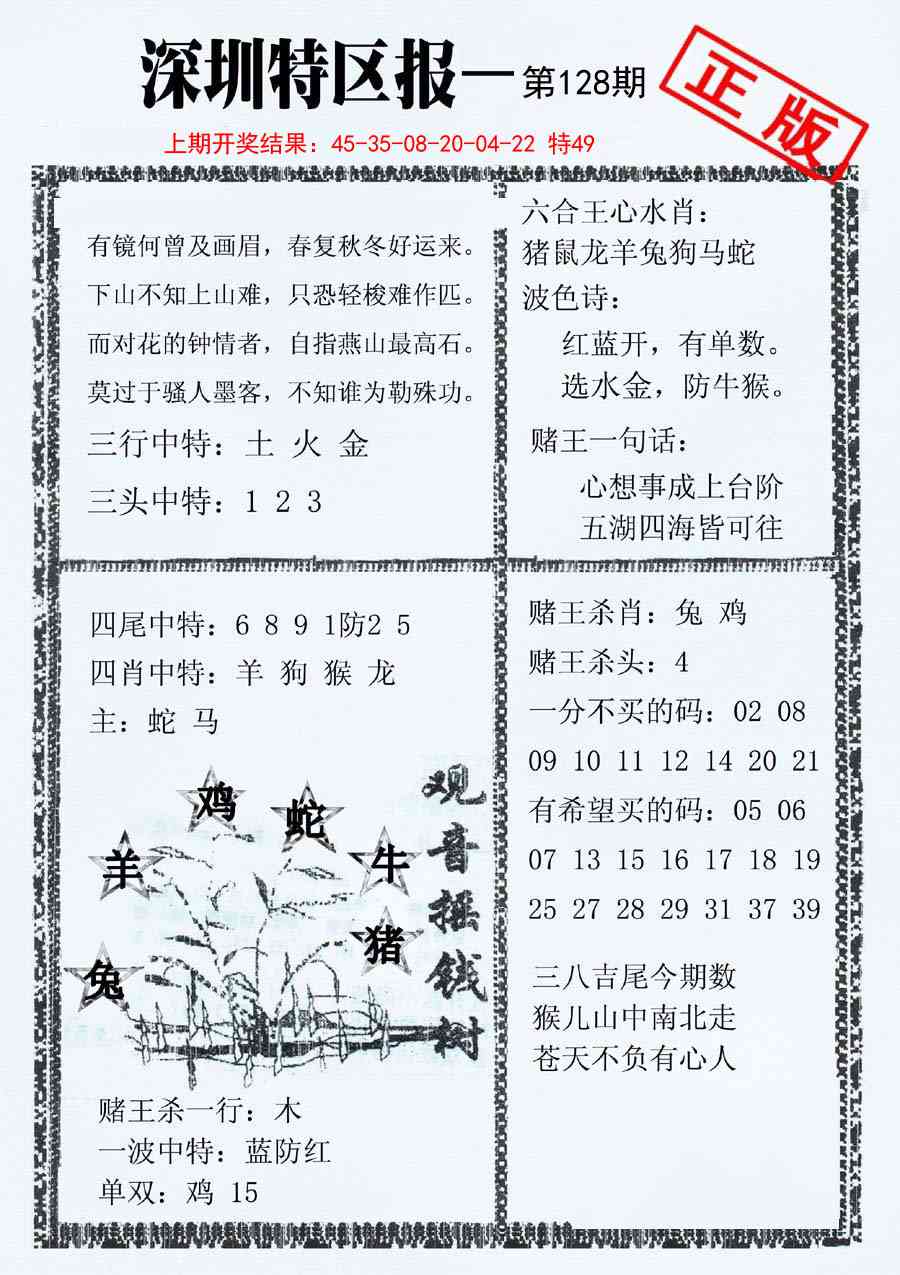 深圳特区报—第128期
正版
上期开奖结果：45-35-08-20-04-22 特49
有镜何曾及画眉，春复秋冬好运来。
下山不知上山难，只恐轻梭难作匹。
而对花的钟情者，自指燕山最高石。
莫过于骚人墨客，不知谁为勒殊功。
三行中特：土 火 金
三头中特：1 2 3
六合王心水肖：
猪鼠龙羊兔狗马蛇
波色诗：
红蓝开，有单数。
选水金，防牛猴。
赌王一句话：
心想事成上台阶
五湖四海皆可往
四尾中特：6 8 9 1防2 5
四肖中特：羊 狗 猴 龙
主：蛇 马
鸡
蛇
羊
牛
猪
兔
观音摇钱树
赌王杀一行：木
一波中特：蓝防红
单双：鸡 15
赌王杀肖：兔 鸡
赌王杀头：4
一分不买的码：02 08
09 10 11 12 14 20 21
有希望买的码：05 06
07 13 15 16 17 18 19
25 27 28 29 31 37 39
三八吉尾今期数
猴儿山中南北走
苍天不负有心人